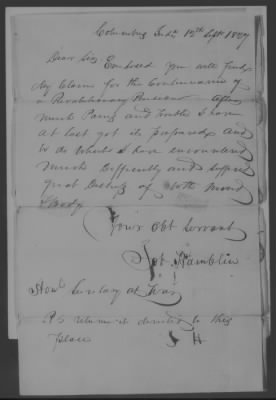 Columbus Inda 12th Sept 1837
Dear Sir, Enclosed you will find
my Claim for the Continuance of
a Revolutionary Pension After
much Pains and trouble I have
at last got it prepared and
to do which I have encountered
much Difficulty and suffered
great Distress of both mind
& body
Your Obt Servant
Job Hamblin
Honl Secretary at War
P.S return it directed to this
place J H